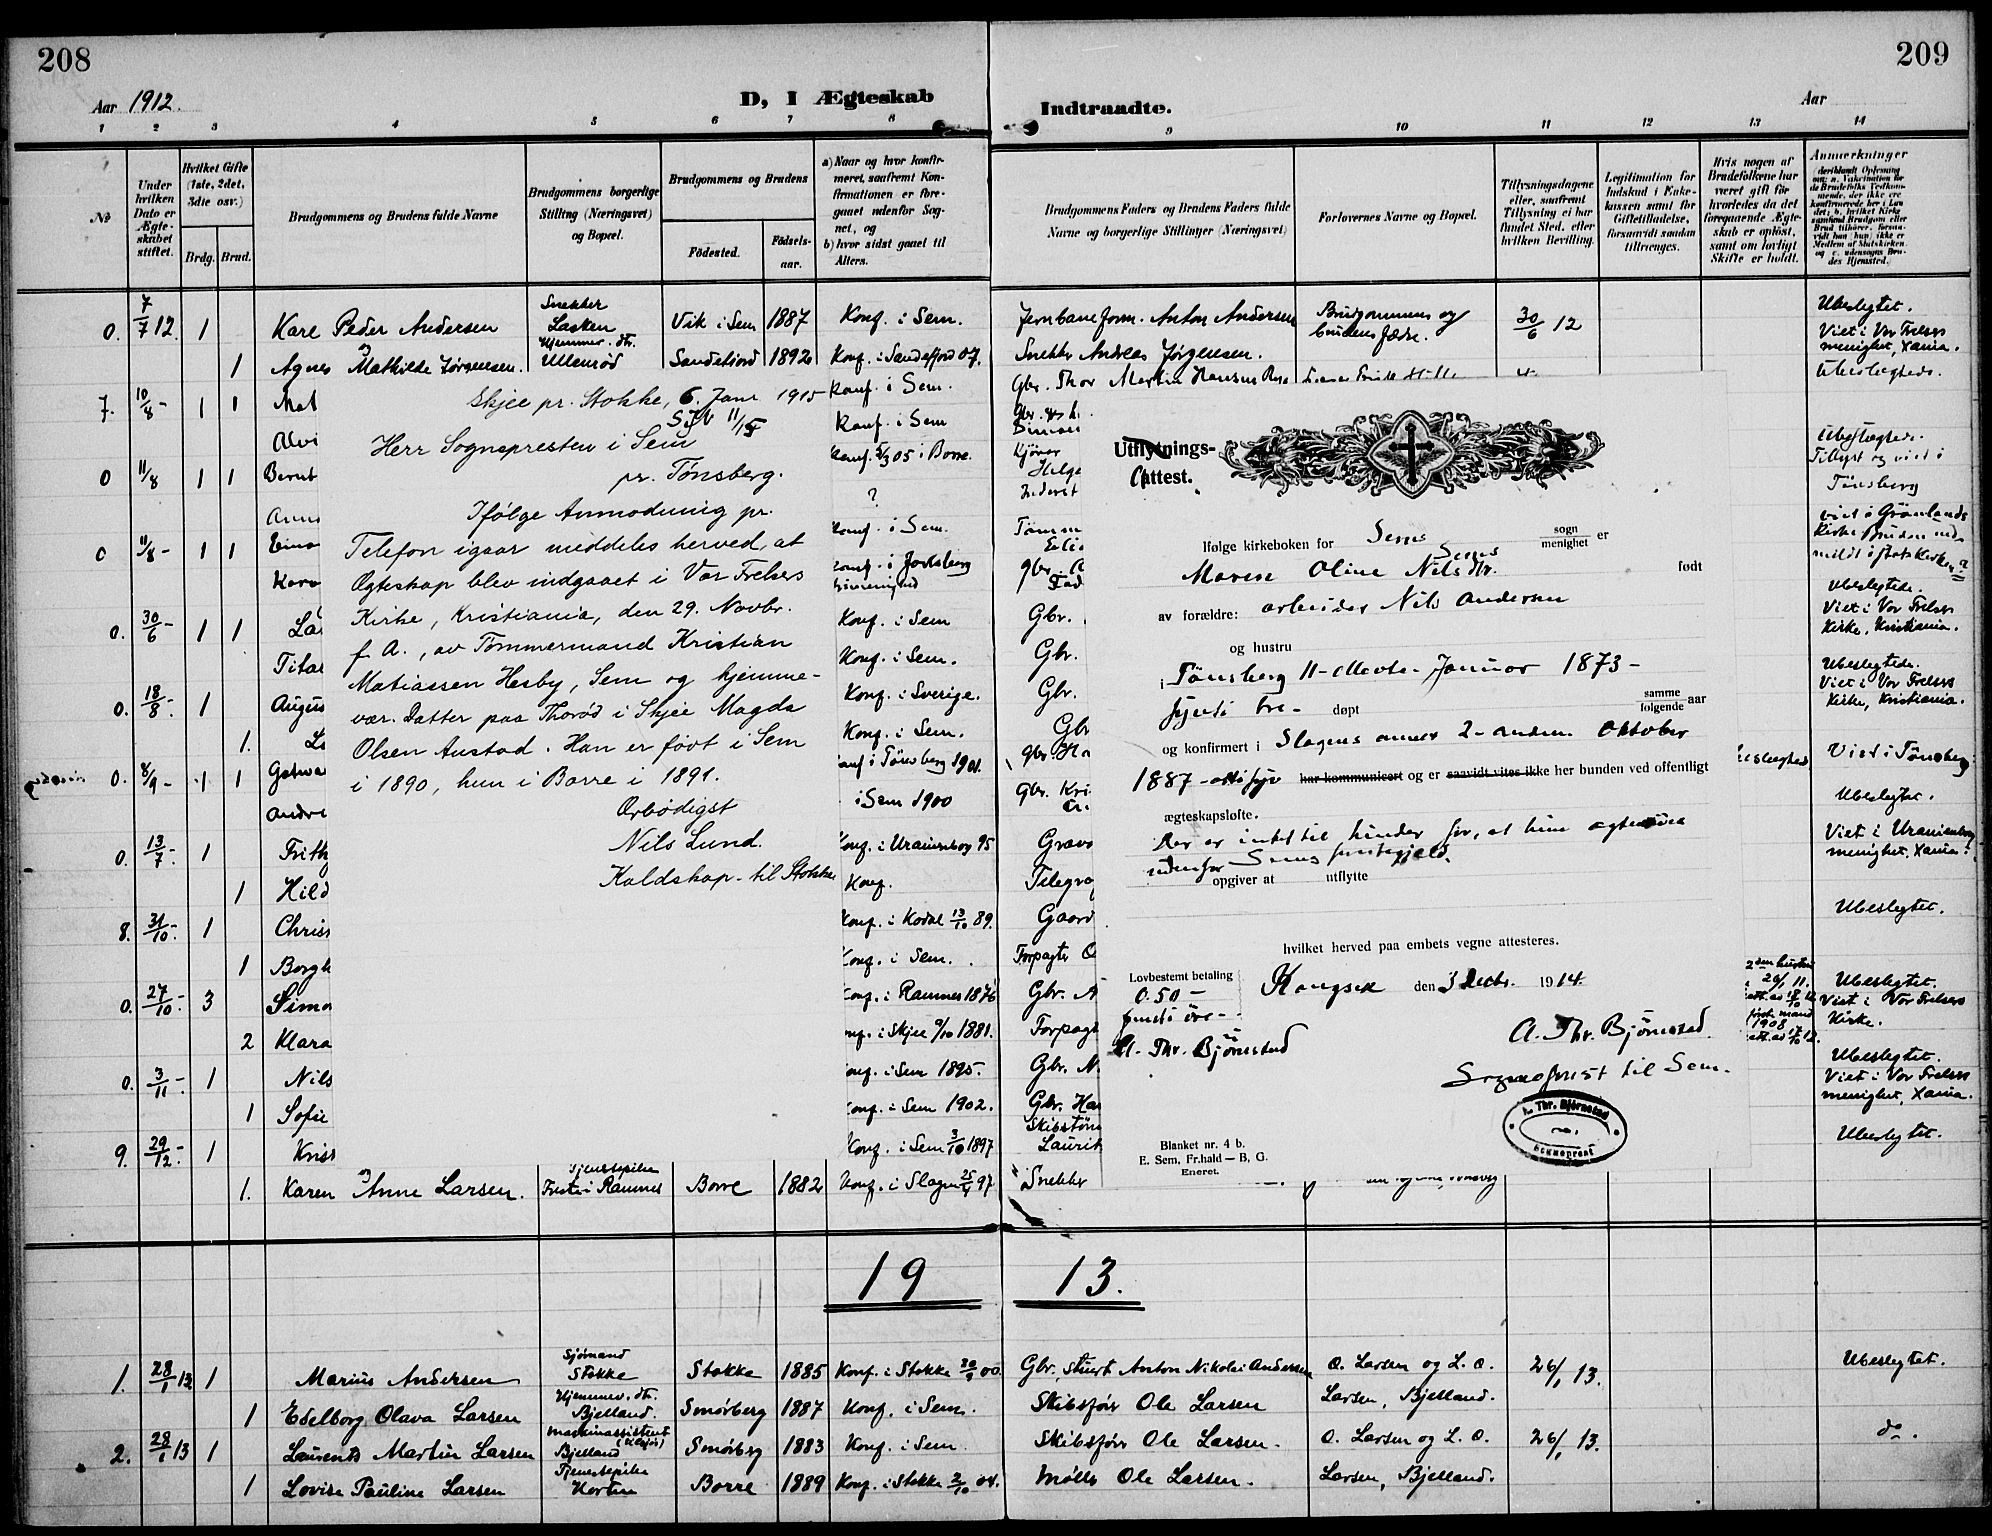 208
209
Aar 1912.
D, I Ægteskab
Indtraadte.
Aar
1 2 3 4 5 6 7 8 9 10 11 12 13 14
No
Under hvilken Dato er Ægteskabet stiftet.
Hvilket Gifte (1ste, 2det, 3die osv.)
Brdg. Brud.
Brudgommens og Brudens fulde Navne
Brudgommens borgerlige Stilling (Næringsvei) og Bopæl.
Brudgommens og Brudens
Fødested.
Fødselsaar.
a) Naar og hvor konfirmeret, saafremt Konfirmationen er foregaaet udenfor Sognet, og
b) hvor sidst gaaet til Alters.
Brudgommens Faders og Brudens Faders fulde Navne og borgerlige Stillinger (Næringsvei)
Forlovernes Navne og Bopæl.
Tillysningsdagene eller, saafremt Tillysning ei har fundet Sted, efter hvilken Bevilling.
Legitimation for Indskud i Enkekassen samt for Giftetilladelse, forsaavidt saadan tiltrænges.
Hvis nogen af Brudefolkene har været gift før hvorledes da det foregaaende Ægteskab er opløst, samt om lovligt Skifte er holdt.
Anmerkninger
0. 7/7 12 1 Karl Peder Andersen Snekker Lasken Vik i Sem 1887 Konf. i Sem. Jernbaneform. Anton Andersen Brudgommens og brudens fædre. 30/6 12 Ubeslegtet. Viet i Vor Frelsers menighet, Xania.
1 Agnes Mathilde Jørgensen. Hjemmev. dtr. Ullenrød Sandefjord 1892 Konf. i Sandefjord 07. Snekker Andreas Jørgensen.
7. 10/8 - 1 1 Mat Konf. i Sem. Gbr. Thor Martin Hansen Ubeslegtede.
Alvi Konf. i Sem
0 11/8 1 1 Bernt Konf. 05 i Borre. Kjører Helge Ubeslegtede. Tillyst og viet i Tønsberg
Anna ? Inderst
0 11/8 - 1 1 Eina Konf. i Sem. Tømm viet i Grønlands Kirke
Karo Gbr.
0. 30/6 - 1 1 La Konf. i Sem Gbr. Ubeslegtede. Viet i Vor Frelsers Kirke, Kristiania.
Titar Konf. i Sem. Gbr.
0. 18/8 - 1 Augus Konf. i Sverige. Gbr. Ubeslegtede. Viet i Vor Frelsers Kirke, Kristiania.
1. Konf. i Sem. Gbr
0. 8/9 - 1 1 Konf i Tønsberg 1901. Gbr. Ha Viet i Tønsberg
Andre i Sem 1900 Gbr. Kri Ubeslegtet.
0. 13/7 - 1 Frith Konf. i Uranienborg 95 Grave Viet i Uranienborg menighet, Xania.
1 Hild Konf. Telegra
8. 31/10 - 1 Chriss Konf. i Kodal 13/10 89. Gaard Ubeslegtet.
1 Borgh Konf. i Sem. Forpagter O
0. 27/10 - 3 Simo Konf. i Ramnes 1876 Gbr. A Ubeslegtet. Viet i Vor Frelsers Kirke.
2 Klara Konf. i Skjee 9/10 1881. Forpagt
0. 3/11 - 1 Nils Konf. i Sem 1895. Gbr. N. Ubeslegtet. Viet i Vor Frelsers menighet, Xania.
1 Sofie Konf. i Sem 1902. Gbr. Ha
9. 29/12 - 1 Kris Konf. i Sem 3/10 1897 Skibstøm Laurit Ubeslegtet.
1. Karen Anne Larsen. Ramnes Borre 1882 Konf. i Slagen 25/4 97 Snekker
Skjee pr. Stokke, 6. Janr 1915
Herr Sognepresten i Sem
pr. Tønsberg.
Ifølge Anmodning pr.
Telefon igaar meddeles herved, at
Ægteskap blev indgaaet i Vor Frelsers
Kirke, Kristiania, den 29. Novbr.
f. A., av Tømmermand Kristian
Matiassen Hesby, Sem og hjemme-
vær. Datter paa Thorød i Skjee Magda
Olsen Austad. Han er født i Sem
i 1890, hun i Borre i 1891.
Ærbødigst
Nils Lund.
Kaldskap. til Stokke
Utflytnings-
Attest.
Ifølge kirkeboken for Sems sogn menighet er
Maren Oline Nilsdtr. født
av forældre: arbeider Nils Andersen
og hustru
i Tønsberg 11-ellevte- Januar 1873-
sytti tre- døpt samme følgende aar
og konfirmert i Slagens annex 2-anden Oktober
1887-otti syv har kommunicert og er saavidt vites ikke her bunden ved offentligt
ægteskapsløfte.
Der er intet til hinder for, at hun
udenfor Sems prestegjeld.
opgiver at utflytte
hvilket herved paa embets vegne attesteres.
Lovbestemt betaling
0.50 -
femti øre -
A. Thr. Bjørnestad
Kongseik den 3 Decbr. 1914.
A. Thr. Bjørnestad
Sogneprest til Sem.
A. Thr. Bjørnestad
Sogneprest
Blanket nr. 4 b.
E. Sem, Fr.hald — B, G.
Eneret.
19 13.
1. 28/1 13 1 Marius Andersen Sjømand Stokke Stokke 1885 Konf. i Stokke 00 Gbr., Stuert Anton Nikolai Andersen O. Larsen og L. O. Larsen, Bjelland. 26/1 13. Ubeslegtet.
1 Edelborg Olava Larsen Hjemmev. dtr. Bjelland. Smørberg 1887 Konf. i Sem. Skibsfører Ole Larsen
2. 28/1 13 1 Laurents Martin Larsen Maskinassistent Bjelland Smørberg 1883 Konf. i Sem. Skibsfører Ole Larsen. O. Larsen og L. O. Larsen, Bjelland. 26/1 13. do.
1 Lovise Pauline Larsen Tjenestepike Horten Borre 1889 Konf. i Stokke 2/10 04. Møller Ole Larsen.